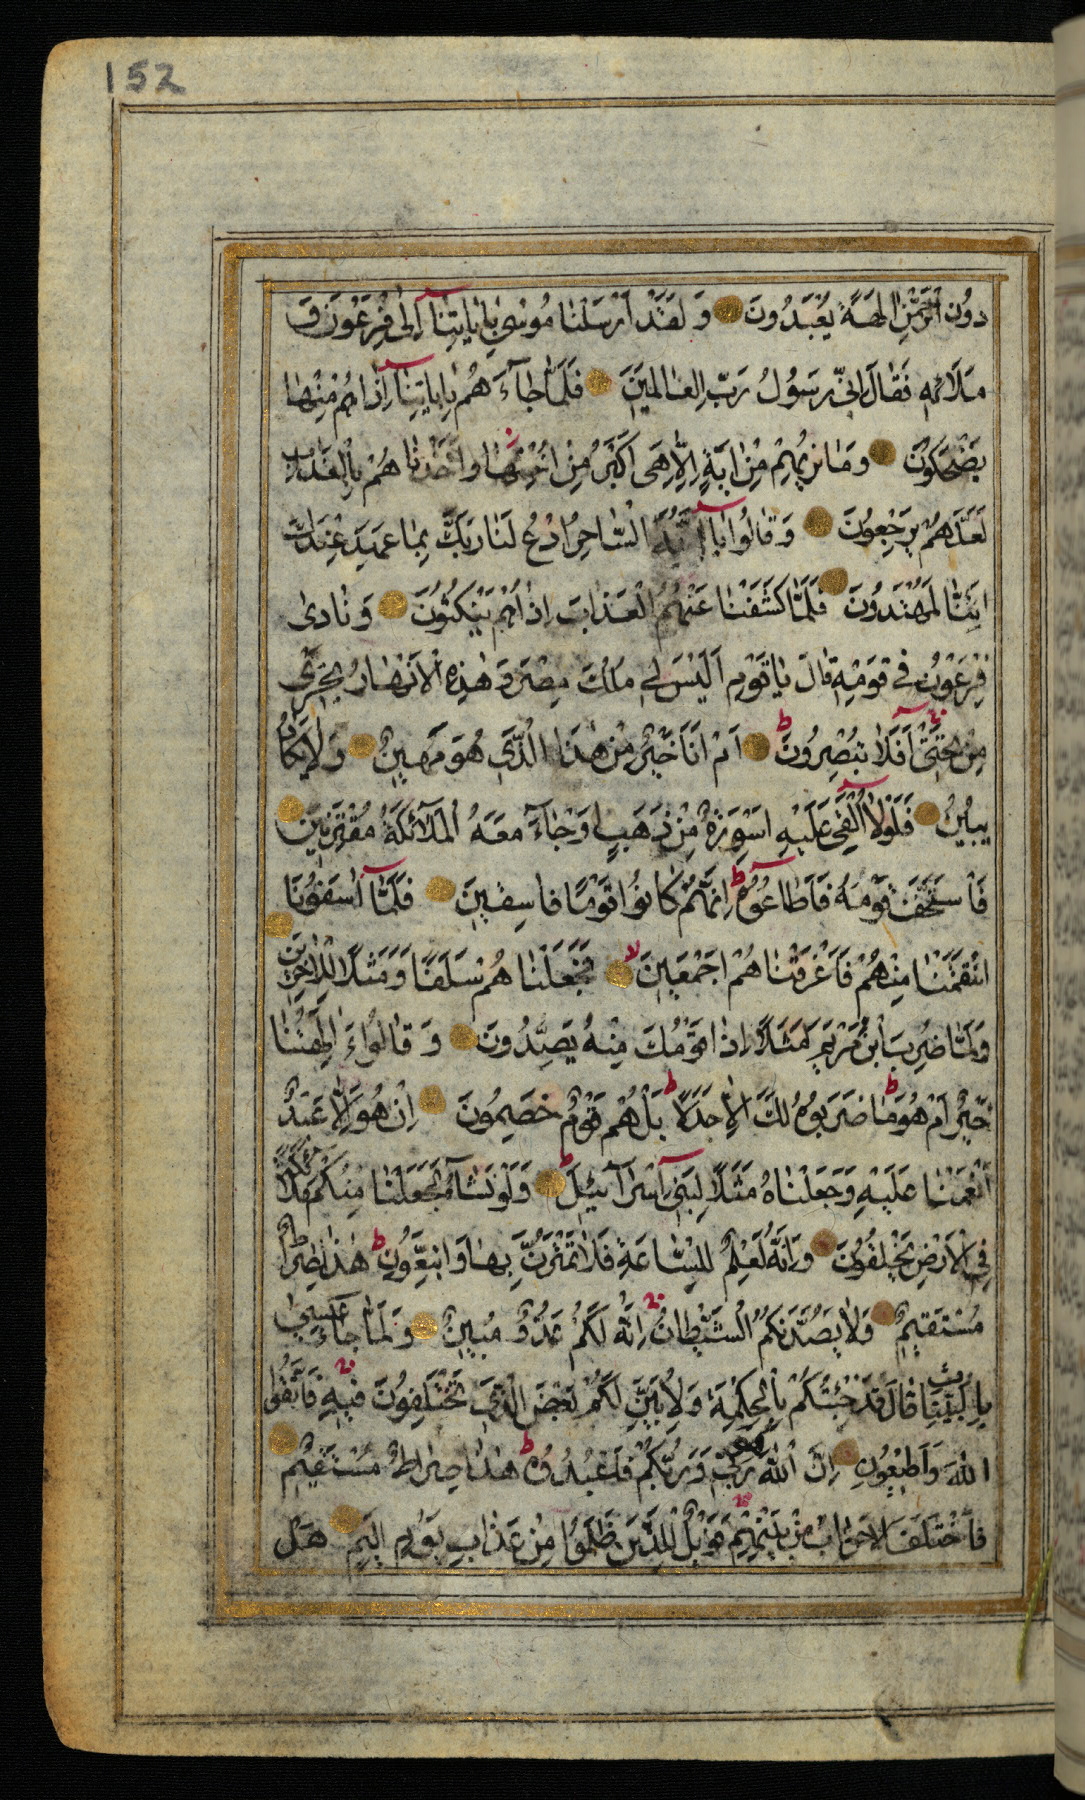 152
دُونِ الرَّحْمٰنِ اٰلِهَةً يُعْبَدُونَ وَ لَقَدْ اَرْسَلْنٰا مُوسٰى بِاٰيٰاتِنٰٓا اِلٰى فِرْعَوْنَ وَ
مَلَائِهِ فَقٰالَ اِنّٰى رَسُولُ رَبِّ الْعٰالَمِينَ فَلَمّٰا جٰٓاءَهُمْ بِاٰيٰاتِنٰٓا اِذٰا هُمْ مِنْهٰا
يَضْحَكُونَ وَمٰا نُرِيهِمْ مِنْ اٰيَةٍ اِلّٰا هِىَ اَكْبَرُ مِنْ اُخْتِهٰا وَاَخَذْنٰا هُمْ بِالْعَذٰابِ
لَعَلَّهُمْ يَرْجِعُونَ وَ قٰالُوا يٰٓا اَيُّهَ السّٰاحِرُ ادْعُ لَنٰا رَبَّكَ بِمٰا عَهِدَ عِنْدَكَ
اِنَّنٰا لَمُهْتَدُونَ فَلَمّٰا كَشَفْنٰا عَنْهُمُ الْعَذٰابَ اِذٰا هُمْ يَنْكُثُونَ وَ نٰادىٰ
فِرْعَوْنُ فى قَوْمِهِ قٰالَ يٰا قَوْمِ اَلَيْسَ لى مُلْكُ مِصْرَ وَ هٰذِهِ الْاَنْهٰارُ تَجْرى
مِنْ تَحْتى اَفَلٰا تُبْصِرُونَ اَمْ اَنَا خَيْرٌ مِنْ هٰذَا الَّذى هُوَ مَهِينٌ وَلٰا يَكٰادُ
يُبِينُ فَلَوْلٰٓا اُلْقِىَ عَلَيْهِ اَسْوِرَةٌ مِنْ ذَهَبٍ اَوْ جٰٓاءَ مَعَهُ الْمَلٰٓائِكَةُ مُقْتَرِنِينَ
فَاسْتَخَفَّ قَوْمَهُ فَاَطٰاعُوهُ اِنَّهُمْ كٰانُوا قَوْمًا فٰاسِقِينَ فَلَمّٰٓا اٰسَفُونٰا
انْتَقَمْنٰا مِنْهُمْ فَاَغْرَقْنٰا هُمْ اَجْمَعِينَ فَجَعَلْنٰا هُمْ سَلَفًا وَ مَثَلًا لِلْاٰخِرِينَ
وَلَمّٰا ضُرِبَ ابْنُ مَرْيَمَ مَثَلًا اِذٰا قَوْمُكَ مِنْهُ يَصِدُّونَ وَ قٰالُوٓا ءَاٰلِهَتُنٰا
خَيْرٌ اَمْ هُوَ مٰا ضَرَبُوهُ لَكَ اِلّٰا جَدَلًا بَلْ هُمْ قَوْمٌ خَصِمُونَ اِنْ هُوَ اِلّٰا عَبْدٌ
اَنْعَمْنٰا عَلَيْهِ وَ جَعَلْنٰاهُ مَثَلًا لِبَنى اِسْرٰٓائيلَ وَلَوْ نَشٰٓاءُ لَجَعَلْنٰا مِنْكُمْ مَلٰٓئِكَةً
فِى الْاَرْضِ يَخْلُفُونَ وَ اِنَّهُ لَعِلْمٌ لِلسّٰاعَةِ فَلٰا تَمْتَرُنَّ بِهٰا وَاتَّبِعُونِ هٰذٰا صِرٰاطٌ
مُسْتَقِيمٌ وَلٰا يَصُدَّنَّكُمُ الشَّيْطٰانُ اِنَّهُ لَكُمْ عَدُوٌّ مُبِينٌ وَ لَمّٰا جٰٓاءَ عِيسٰى
بِالْبَيِّنٰاتِ قٰالَ قَدْ جِئْتُكُمْ بِالْحِكْمَةِ وَ لِاُبَيِّنَ لَكُمْ بَعْضَ الَّذى تَخْتَلِفُونَ فِيهِ فَاتَّقُوا
اللّٰهَ وَ اَطِيعُونِ اِنَّ اللّٰهَ هُوَ رَبّى وَ رَبُّكُمْ فَاعْبُدُوهُ هٰذٰا صِرٰاطٌ مُسْتَقِيمٌ
فَاخْتَلَفَ الْاَحْزٰابُ مِنْ بَيْنِهِمْ فَوَيْلٌ لِلَّذينَ ظَلَمُوا مِنْ عَذٰابِ يَوْمٍ اَلِيمٍ هَلْ